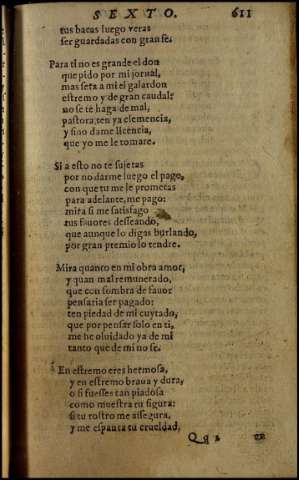 SEXTO. 611
tus bacas luego veras
ser guardadas con gran fe.
Para ti no es grande el don
que pido por mi jornal,
mas sera a mi el galardon
estremo y de gran caudal:
no se te haga de mal,
pastora, ten ya clemencia,
y sino dame licencia,
que yo me le tomare.
Si a esto no te sujetas
por no darme luego el pago,
con que tu me le prometas
para adelante, me pago:
mira si me satisfago
tus fauores desseando,
que aunque lo digas burlando,
por gran premio lo tendre.
Mira quanto en mi obra amor,
y quan mal remunerado,
que con sombra de fauor
pensaria ser pagado:
ten piedad de mi cuytado,
que por pensar solo en ti,
me he oluidado ya de mi
tanto que de mi no se.
En estremo eres hermosa,
y en estremo braua y dura,
o si fuesses tan piadosa
como muestra tu figura:
si tu rostro me assegura,
y me espanta tu crueldad,
Qq 2